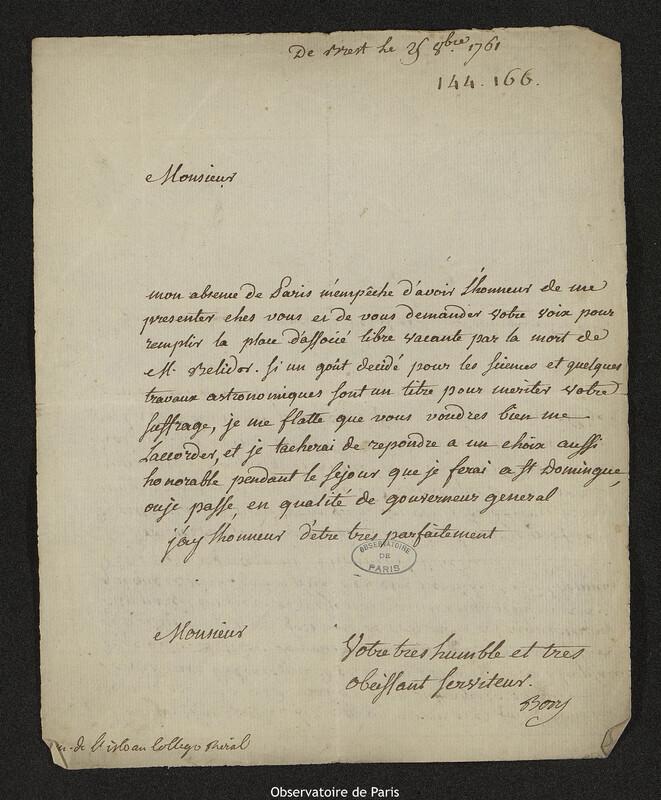 De Brest le 25 8bre 1761
144. 166.
Monsieur
mon absence de Paris m'empêche d'avoir l'honneur de me
presenter ches vous et de vous demander votre voix pour
remplir la place d'associé libre vacante par la mort de
M. Belidor. si un goût decidé pour les sciences et quelques
travaux astronomiques sont un titre pour meriter votre
suffrage, je me flatte que vous voudres bien me
l'accorder, et je tacherai de repondre a un choix aussi
honorable pendant le séjour que je ferai a St Domingue,
ou je passe en qualité de gouverneur general
j'ay l'honneur d'être tres parfaitement
OBSERVATOIRE
DE
PARIS
Monsieur
Votre tres humble et tres
obeissant serviteur.
Bory
de l'isle au College
Observatoire de Paris